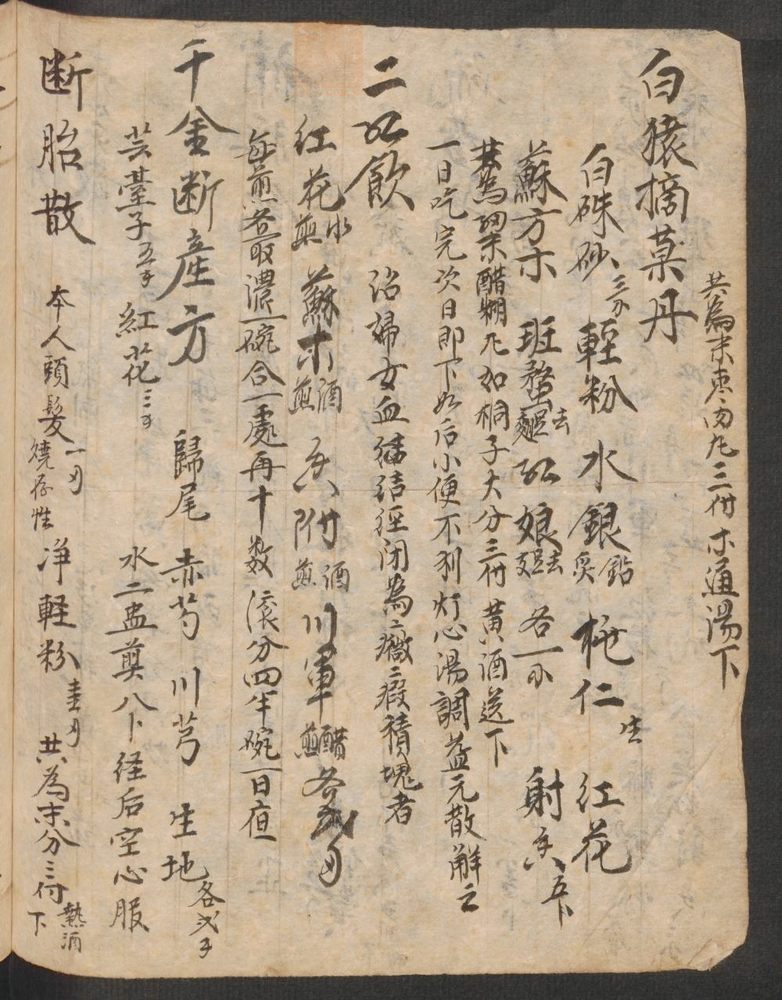 共為末棗肉丸三付木通湯下
白猿摘菓丹
白硃砂三分 輕粉 水銀鉛炙 桃仁 生 紅花
蘇方木 班蝥去翅足 紅娘去翅足 各一分 射香五卜
共為細末醋糊丸如桐子大分三付黃酒送下
一日吃完次日即下如后小便不利灯心湯調益元散解之
二红飲 治婦女血結經闭為二癥二瘕積塊者
红花水煎 蘇木酒煎 香附酒煎 川軍醋煎 各弍刄
每煎各取濃一碗合一處再十数滚分四半碗一日夜
千金断產方 歸尾 赤芍 川芎 生地各弍子
芸薹子五子 紅花三子 水二盅煎八卜経后空心服
断胎散 本人頭髮一刄燒存性 净輕粉 壹刄 共為末分三付熱酒下